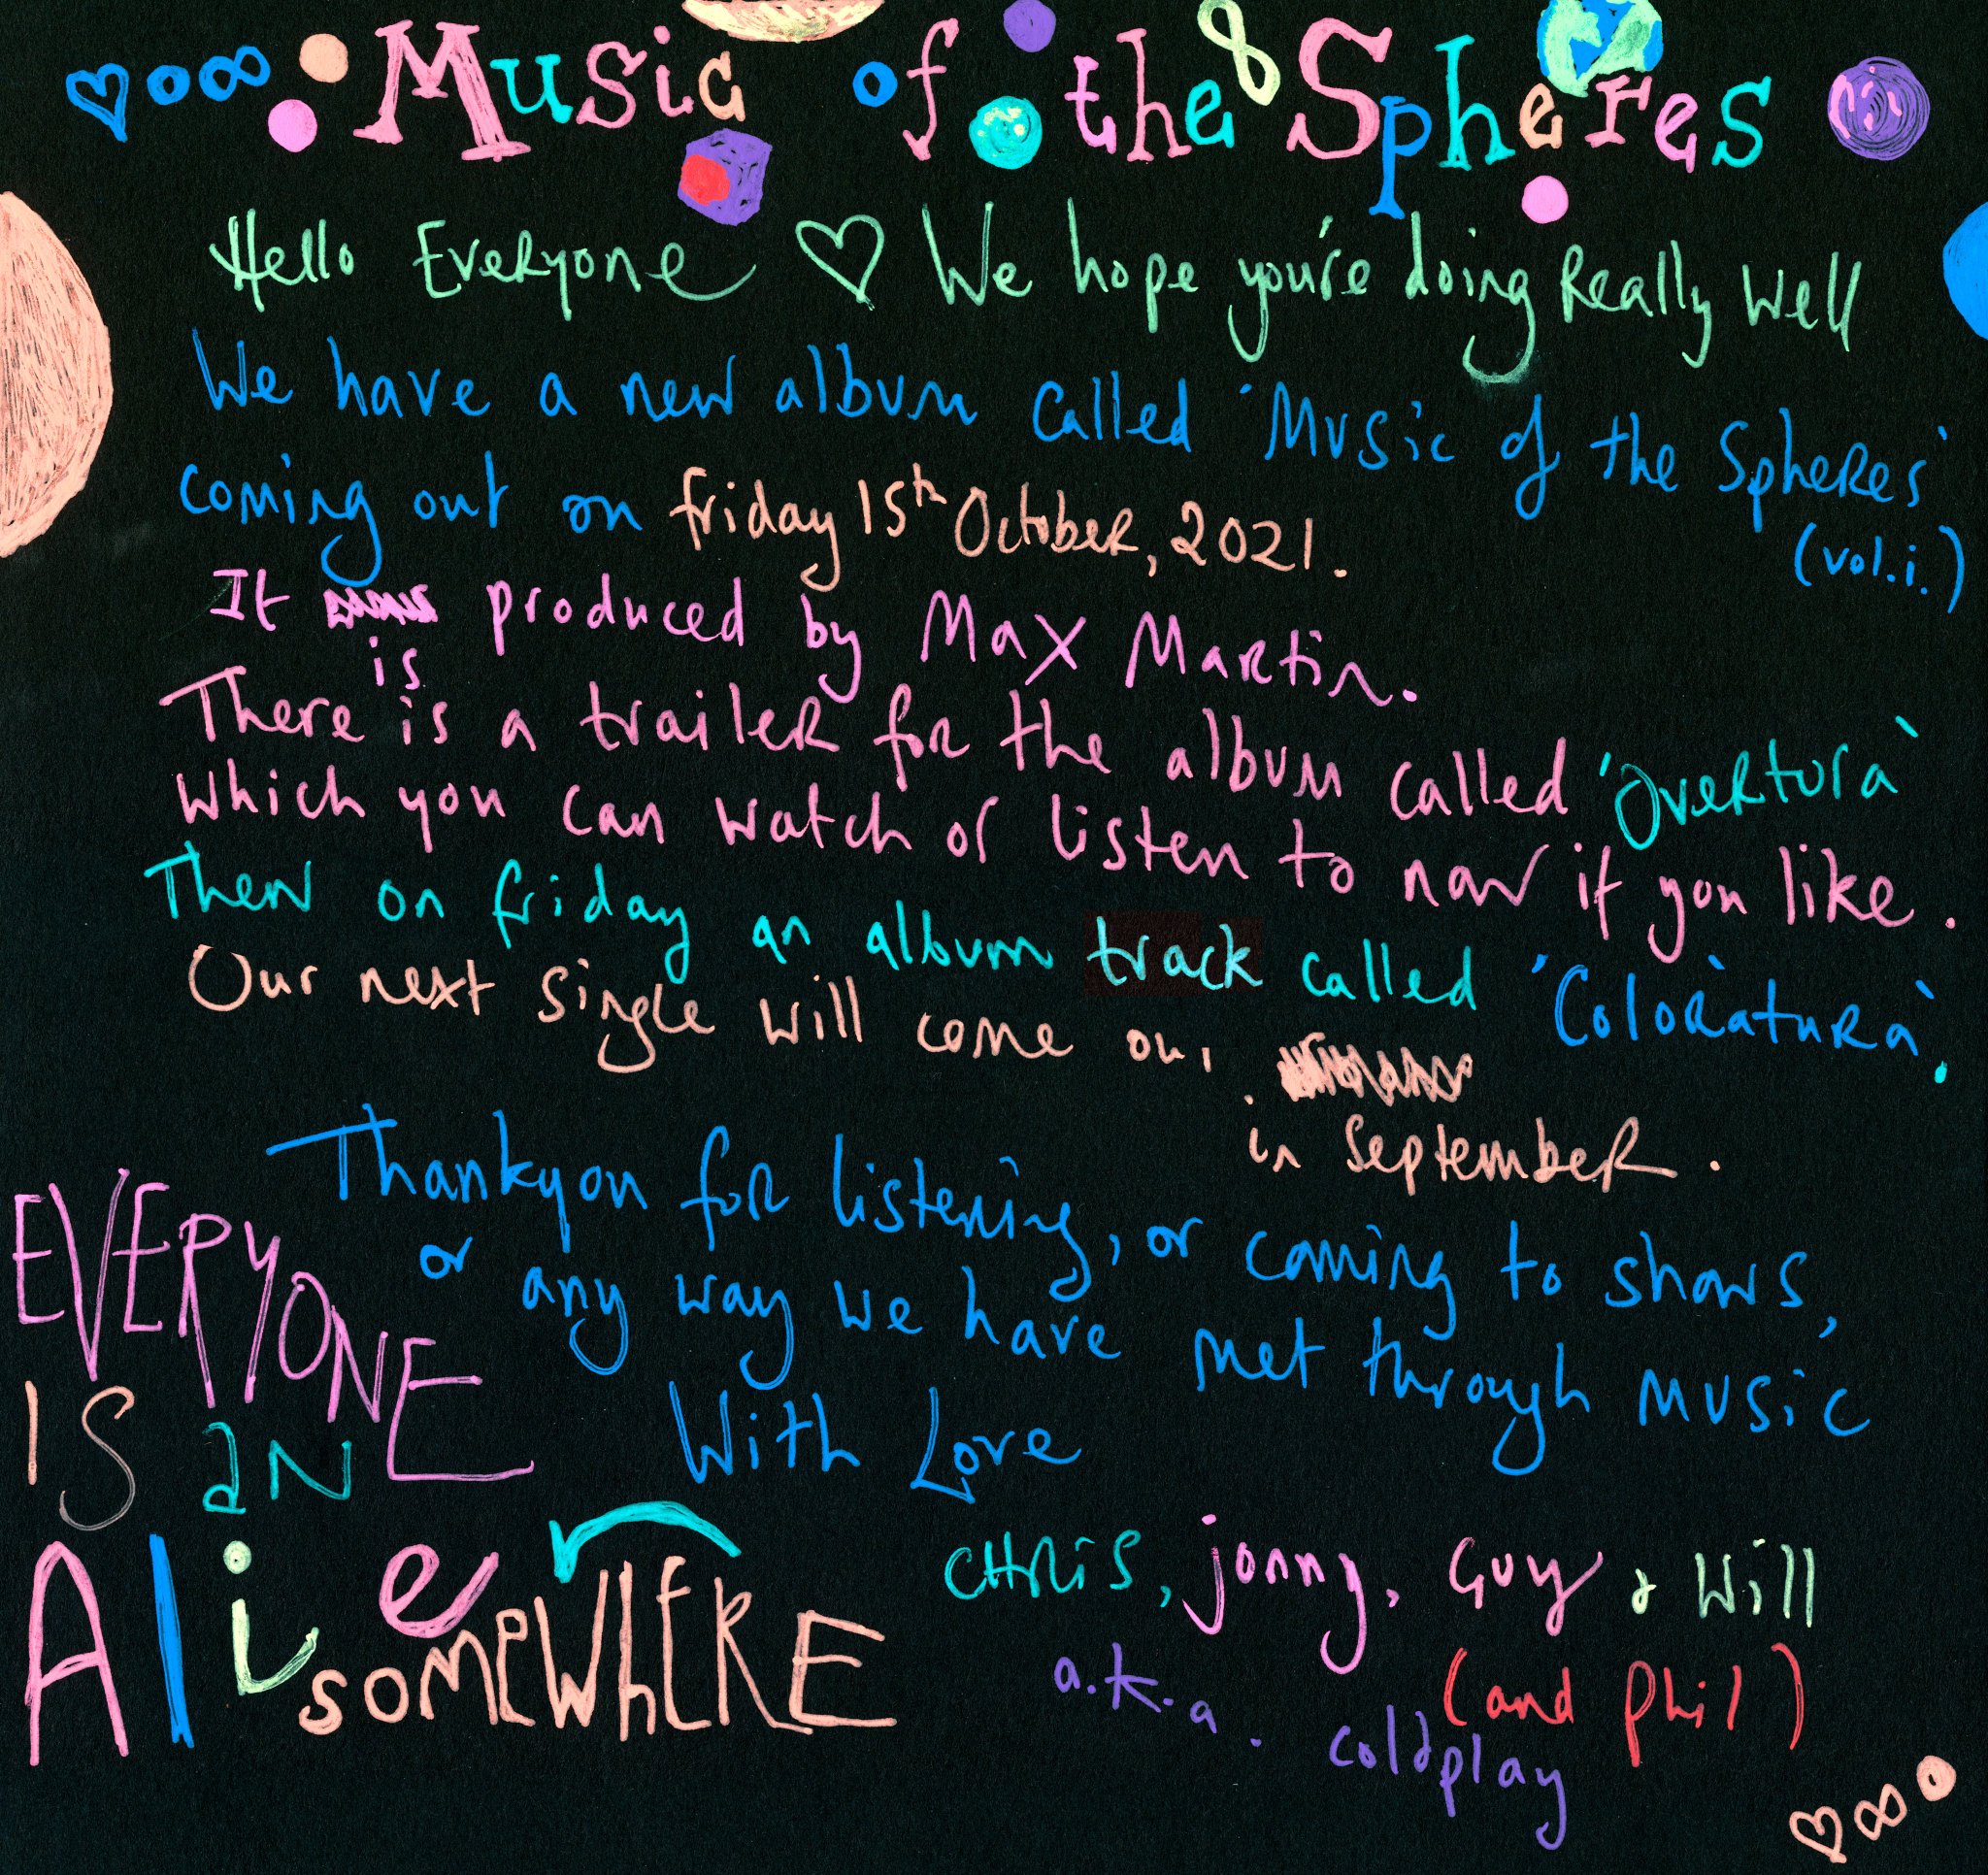 ♡○∞ Music of the Spheres
Hello Everyone ♡ We hope you're doing Really Well
We have a new album called 'Music of the Spheres'
(vol.i.)
coming out on friday 15th October, 2021.
It is produced by Max Martin.
There is a trailer for the album called 'Overtura'
which you can watch or listen to now if you like.
Then on friday an album track called 'Coloratura'.
Our next single will come out
in September.
Thankyou for listening, or coming to shows,
or any way we have met through music
With Love
EVERYONE
IS aN
Alien
SOMEWHERE
CHRis, jonny, Guy & Will
(and Phil)
a.k.a. coldplay
♡∞○